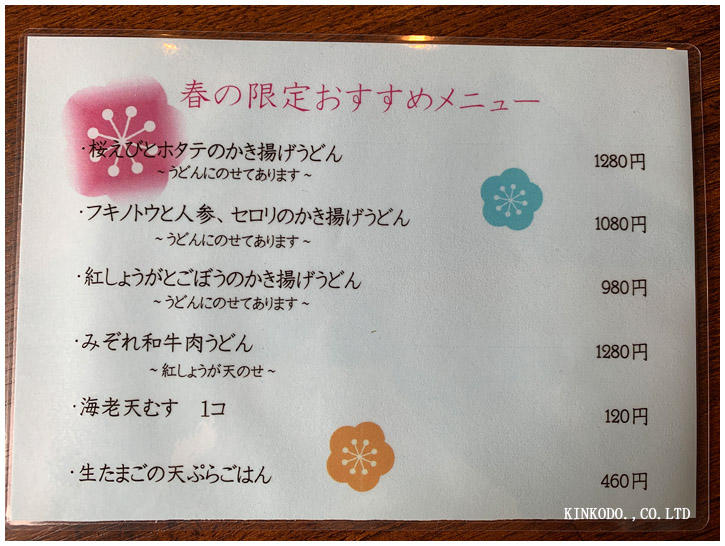 春の限定おすすめメニュー
・桜えびとホタテのかき揚げうどん 1280円
～うどんにのせてあります～
・フキノトウと人参、セロリのかき揚げうどん 1080円
～うどんにのせてあります～
・紅しょうがとごぼうのかき揚げうどん 980円
～うどんにのせてあります～
・みぞれ和牛肉うどん 1280円
～紅しょうが天のせ～
・海老天むす　1コ 120円
・生たまごの天ぷらごはん 460円
KINKODO.,CO.LTD